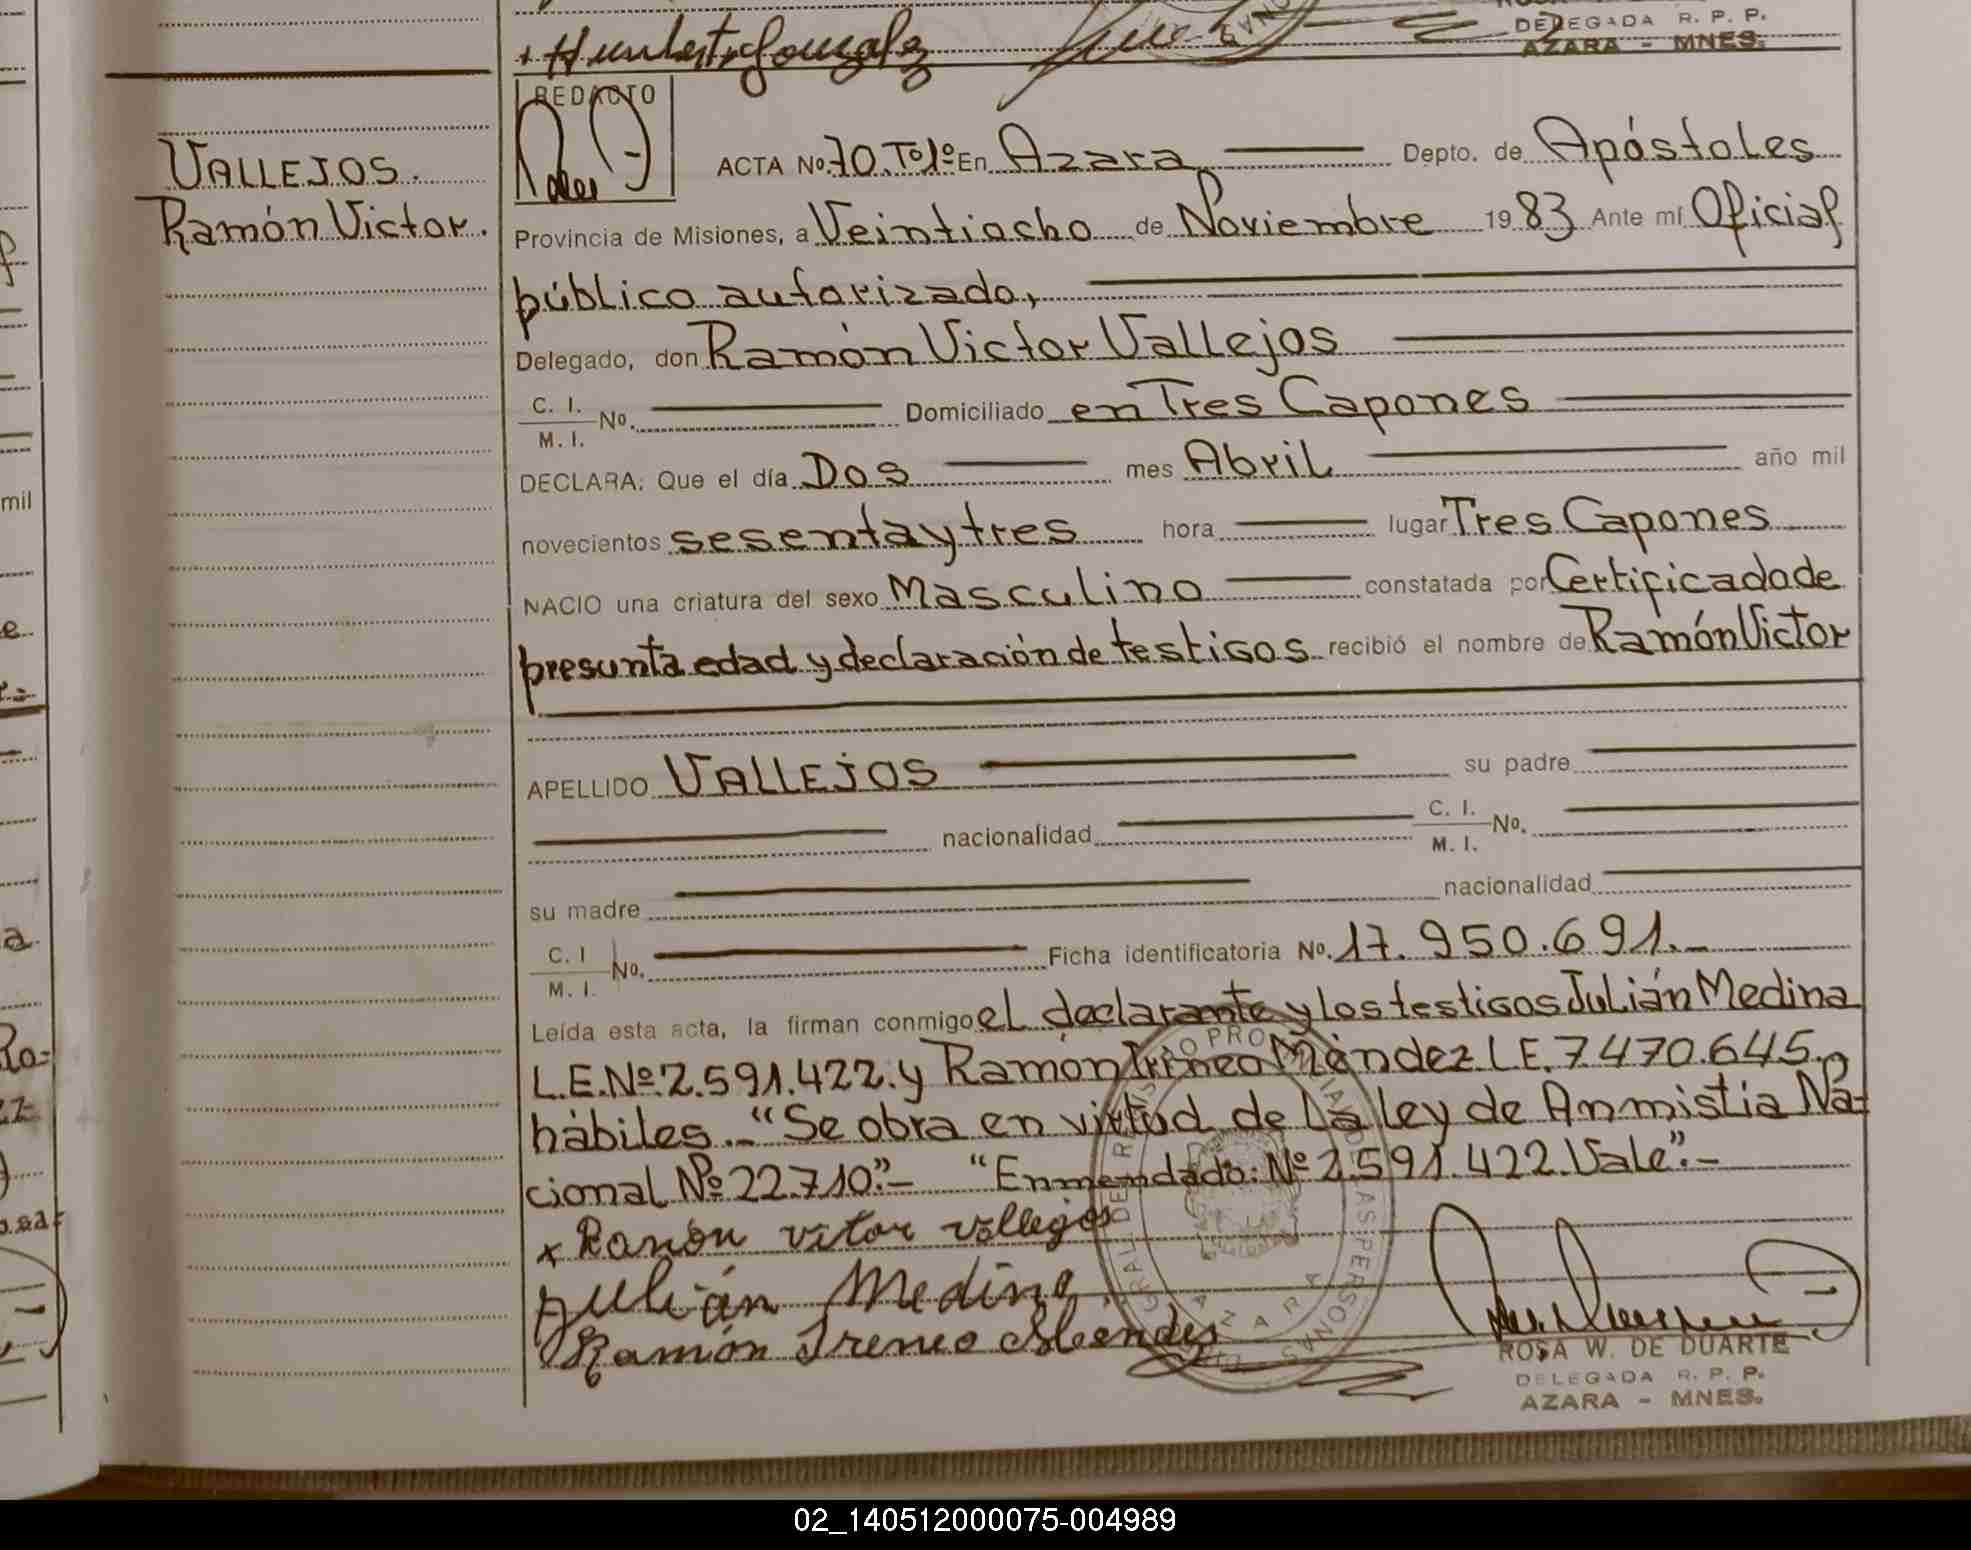 Humberto Gonzalez
DELEGADA R. P. P.
AZARA - MNES.
REDACTO
VALLEJOS.
Ramón Victor.
ACTA Nº. 70. Tº1º En Azara Depto. de Apóstoles
Provincia de Misiones, a Veintiocho de Noviembre 1983 Ante mí Oficial
público autorizado,
Delegado, don Ramón Victor Vallejos
C. I.
M. I. Nº. Domiciliado en Tres Capones
DECLARA: Que el día Dos mes Abril año mil
novecientos sesenta y tres hora lugar Tres Capones
NACIO una criatura del sexo Masculino constatada por Certificado de
presunta edad y declaración de testigos recibió el nombre de Ramón Victor
APELLIDO VALLEJOS su padre
nacionalidad C. I.
M. I. Nº.
su madre nacionalidad
C. I
M. I. Nº. Ficha identificatoria Nº. 17.950.691.-
Leída esta acta, la firman conmigo el declarante y los testigos Julián Medina
L.E.Nº 2.591.422. y Ramón Irineo Méndez L.E. 7.470.645.
hábiles.-"Se obra en virtud de la ley de Anmistia Na-
cional Nº 22.710".- "Enmendado: Nº 2.591.422. Vale".-
x Ramón vitor vallejos
Julián Medina
Ramón Ireneo Mendez
ROSA W. DE DUARTE
DELEGADA R. P. P.
AZARA - MNES.
AZARA
mil
02_140512000075-004989